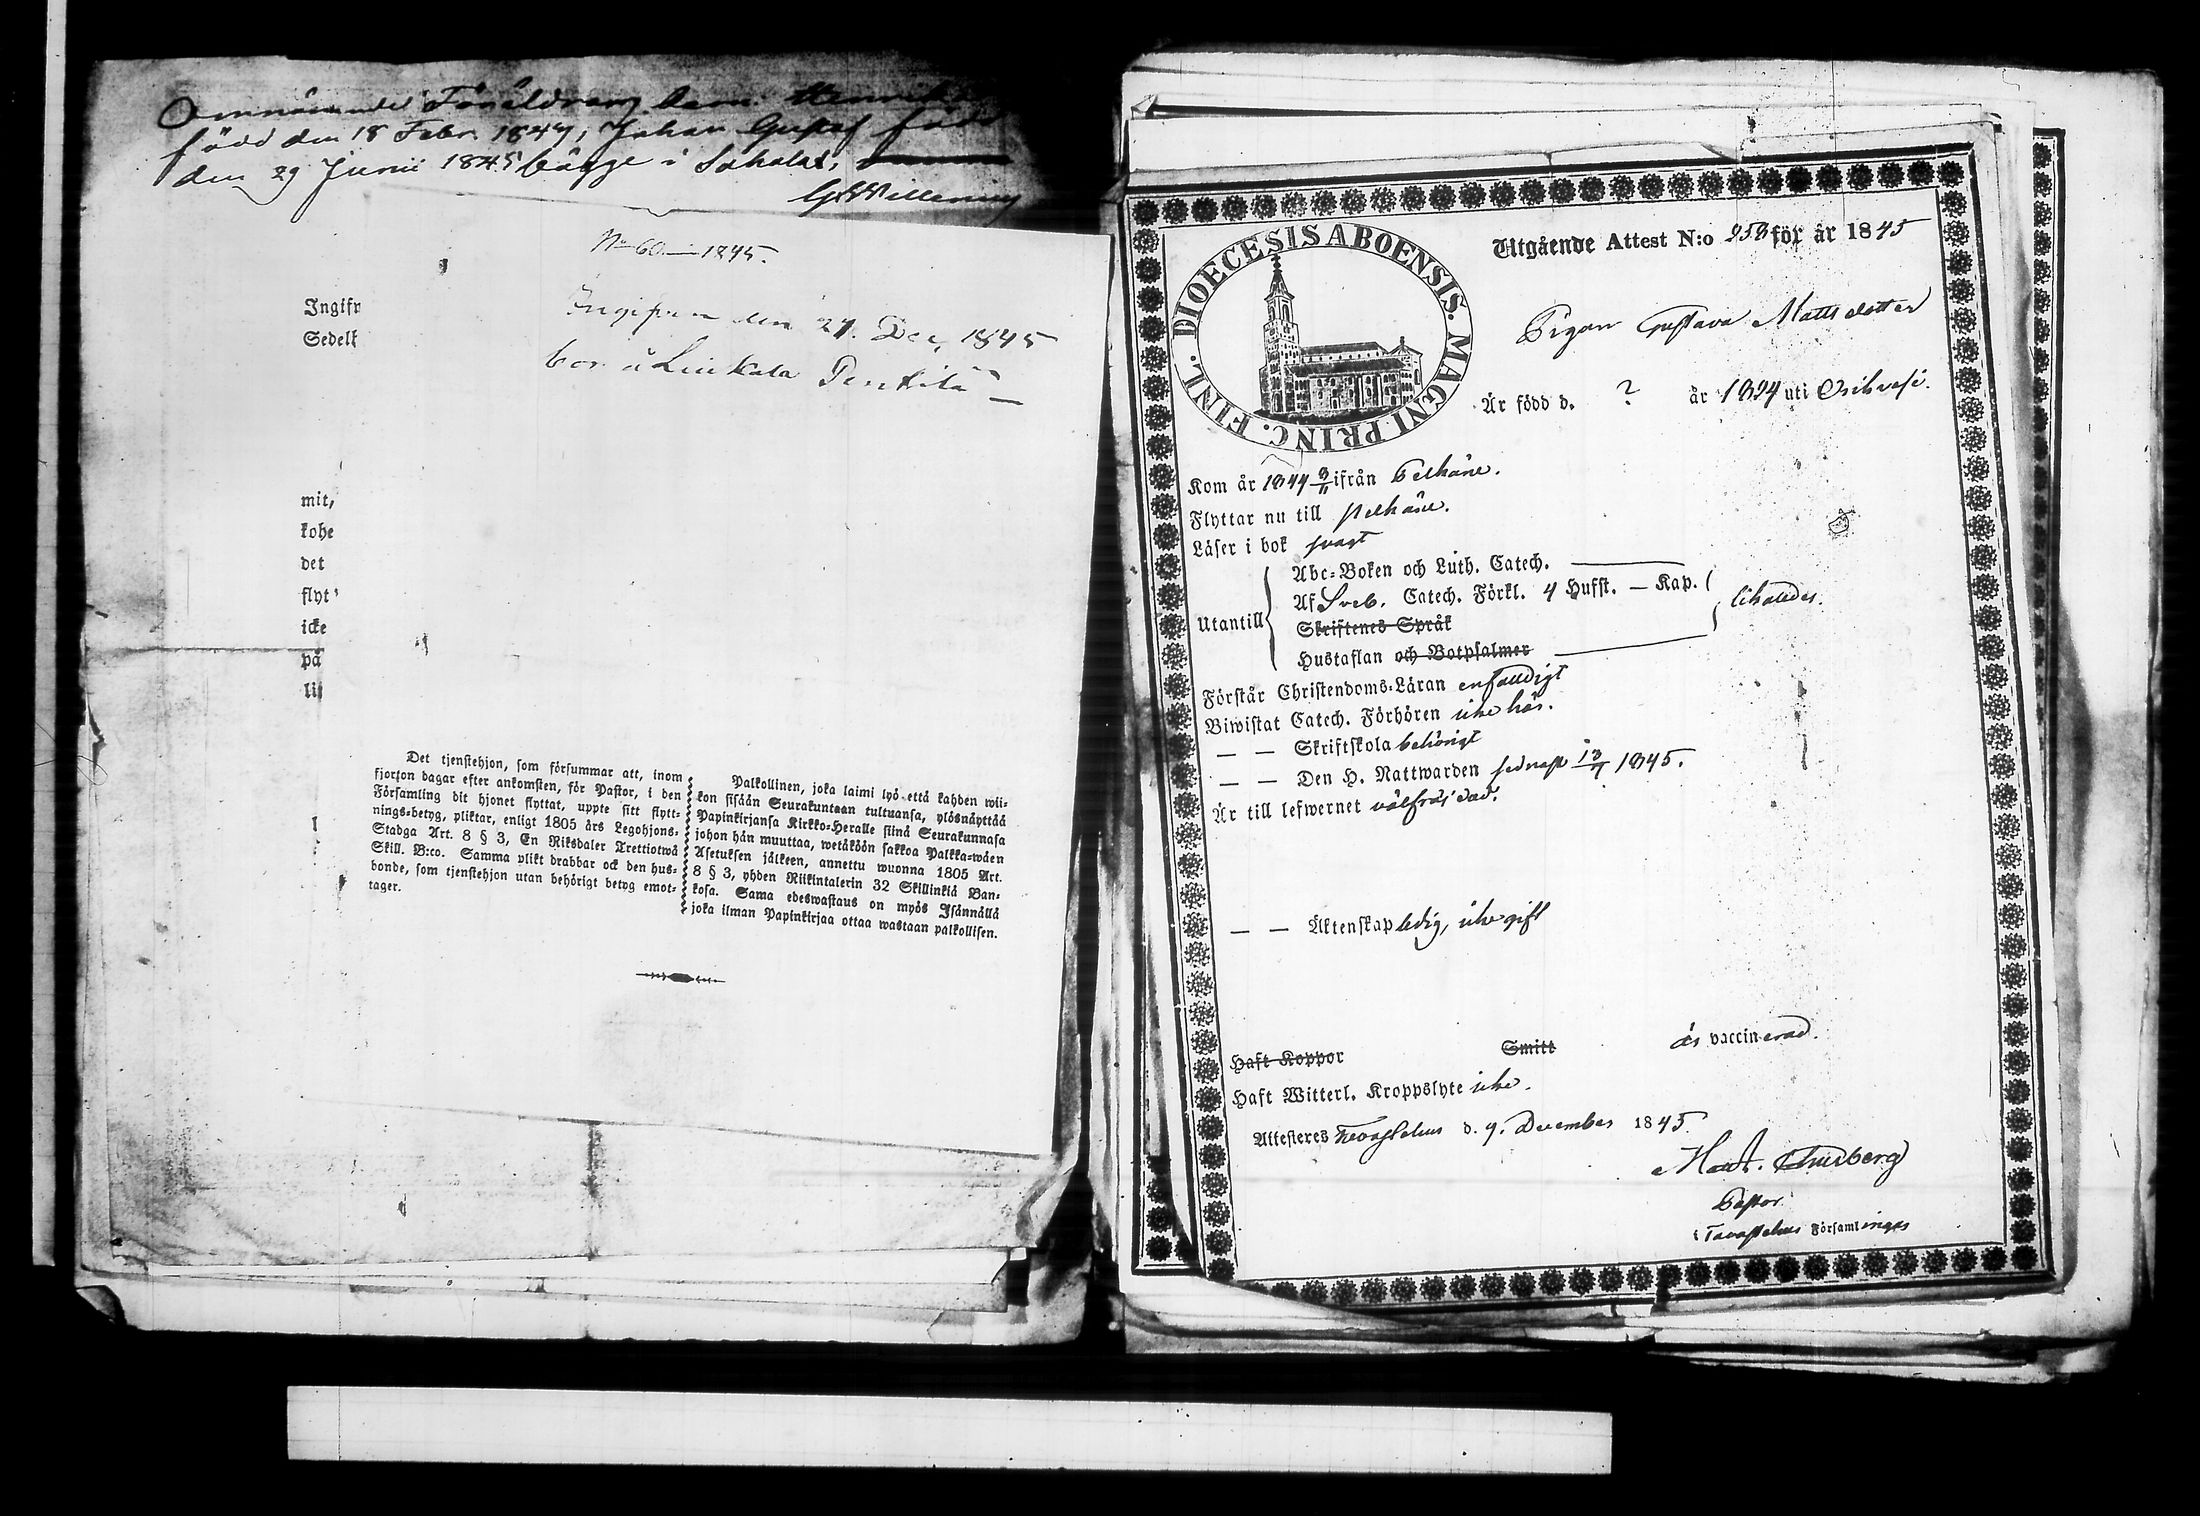 Omnämndel Föräldrars barn Henrika
född den 18 Febr. 1844, Johan Gustaf född
den 29 Junii 1845 bägge i Sahalax;
G. W. Willenius
No 60 — 1845.
Ingifven den 27. Dec. 1845
bor å Liukala Penttilä
Ingifv
Sedelh
mit,
kohe
det
flyt
icke
på
lif
Det tjenstehjon, som försummar att, inom
fjorton dagar efter ankomsten, för Pastor, i den
Församling dit hjonet flyttat, uppte sitt flytt-
nings-betyg, pliktar, enligt 1805 års Legohjons-
Stadga Art. 8 § 3, En Riksdaler Trettiotwå
Skill. B:co. Samma plikt drabbar ock den hus-
bonde, som tjenstehjon utan behörigt betyg emot-
tager.
Palkollinen, joka laimi lyö että kahden wii-
kon sisään Seurakuntaan tultuansa, ylösnäyttää
Papinkirjansa Kirkko-Heralle siinä Seurakunnasa
johon hän muuttaa, wetäköön sakkoa Palkka-wäen
Asetuksen jälkeen, annettu wuonna 1805 Art.
8 § 3, yhden Riikintalerin 32 Skillinkiä Ban-
kosa. Sama edeswastaus on myös Isännällä
joka ilman Papinkirjaa ottaa wastaan palkollisen.
DIOECESIS ABOENSIS. MAGNI PRINC. FINL.
Utgående Attest N:o 258 för år 1845
Pigan Gustava Mattsdotter
Är född d. ? år 1824 uti Orihvesi.
Kom år 1844 3/11 ifrån Pelkäne.
Flyttar nu till Pelkäne.
Läser i bok svagt
Utantill
Abc-Boken och Luth. Catech.
Af Sveb. Catech. Förkl. 4 Hufst. — Kap.
likaledes.
Skriftenes Språk
Hustaflan och Botpsalmer
Förstår Christendoms-Läran enfaldigt
Biwistat Catech. Förhören icke här.
— — Skriftskola behörigt
— — Den H. Nattwarden sednast 13/7 1845.
Är till lefwernet välfräjdad.
— — Äktenskap ledig, icke gift
Haft Koppor Smitt är vaccinerad.
Haft Witterl. Kroppslyte icke.
Attesteres Tavastehus d. 9. December 1845
Pastor
i Tavastehus Församlings